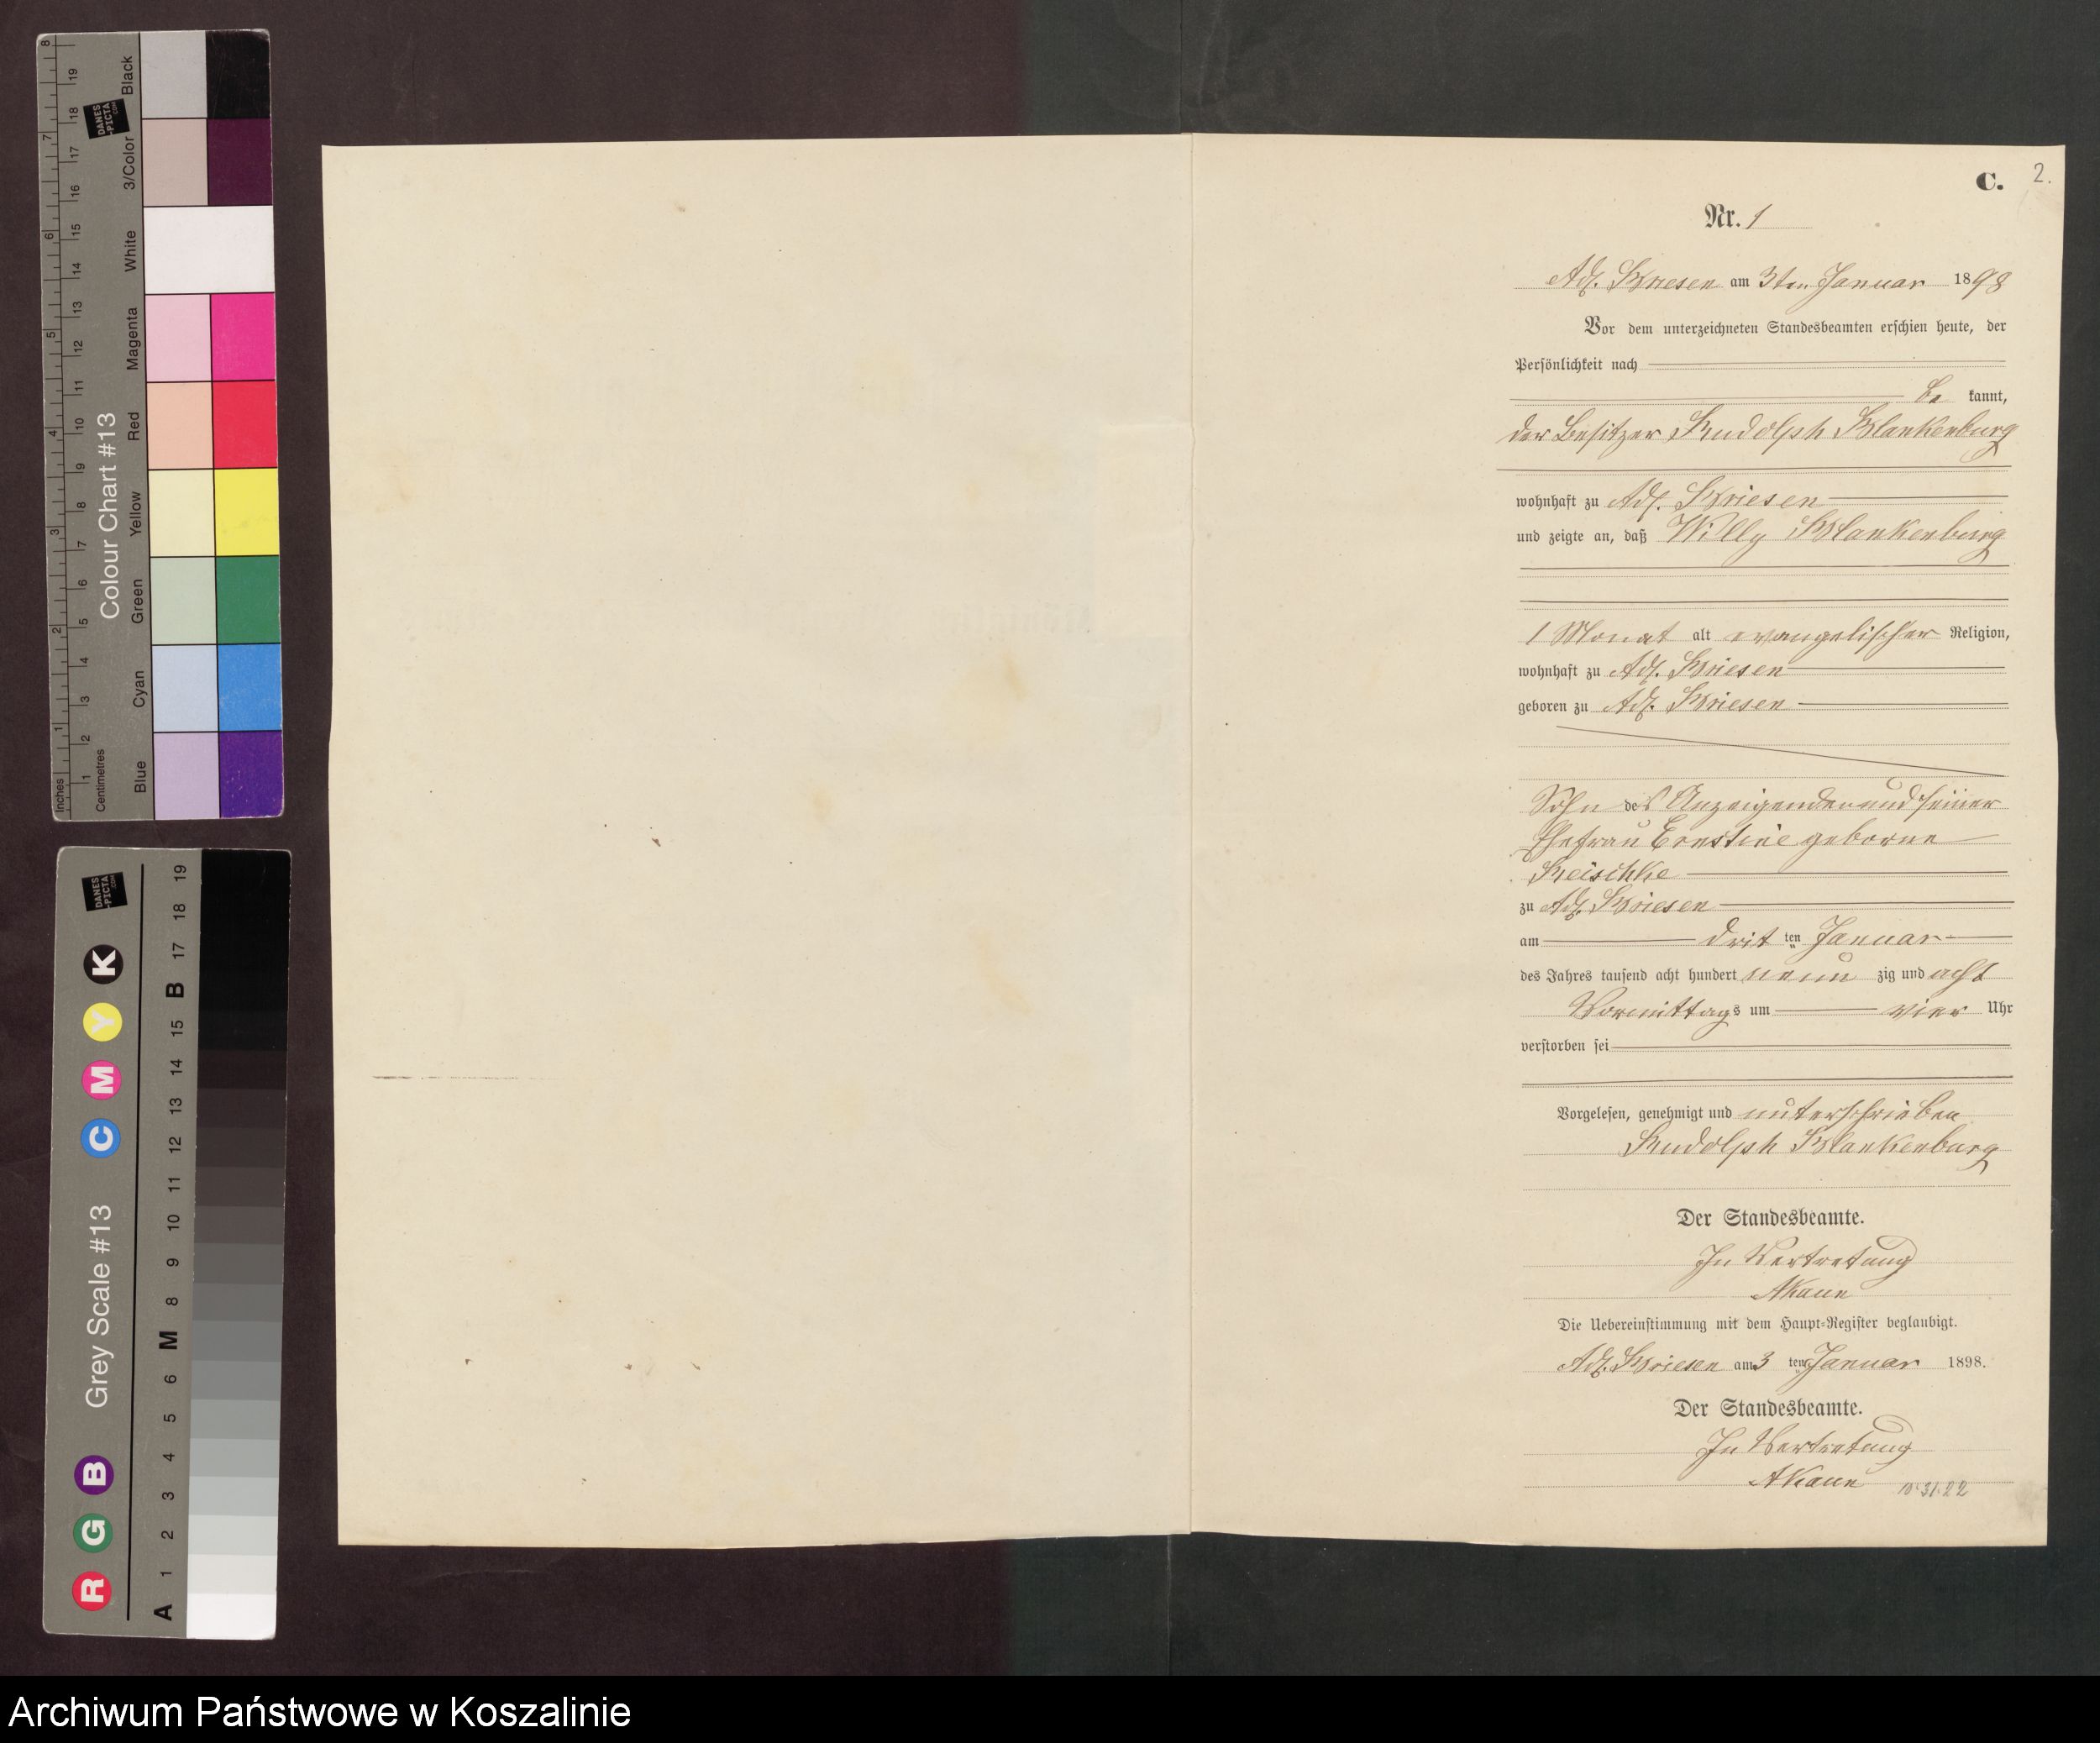 C. 2.
Nr. 1
Adl. Briesen am 3ten Januar 1898
Vor dem unterzeichneten Standesbeamten erschien heute, der
Persönlichkeit nach
be kannt,
der Besitzer Rudolph Blankenburg
wohnhaft zu Adl. Briesen
und zeigte an, daß Willy Blankenburg
1 Monat alt evangelischer Religion,
wohnhaft zu Adl. Briesen
geboren zu Adl. Briesen
Sohn des Anzeigenden und seiner
Ehefrau Ernstine geborne
Reischke
zu Adl. Briesen
am drit ten Januar
des Jahres tausend acht hundert neun zig und acht
Vormittags um vier Uhr
verstorben sei
Vorgelesen, genehmigt und unterschrieben
Rudolph Blankenburg
Der Standesbeamte.
In Vertretung
Die Uebereinstimmung mit dem Haupt-Register beglaubigt.
Adl. Briesen am 3 ten Januar 1898.
Der Standesbeamte.
In Vertretung
10.31.22
Colour Chart #13
Black
3/Color
White
Magenta
Red
Yellow
Green
Cyan
Blue
Inches
1 2 3 4 5 6 7 8
Centimetres
1 2 3 4 5 6 7 8 9 10 11 12 13 14 15 16 17 18 19
DANES
-PICTA
.COM
Grey Scale #13
R G B C M Y K
A 1 2 3 4 5 6 M 8 9 10 11 12 13 14 15 B 17 18 19
DANES
-PICTA
.COM
Archiwum Państwowe w Koszalinie